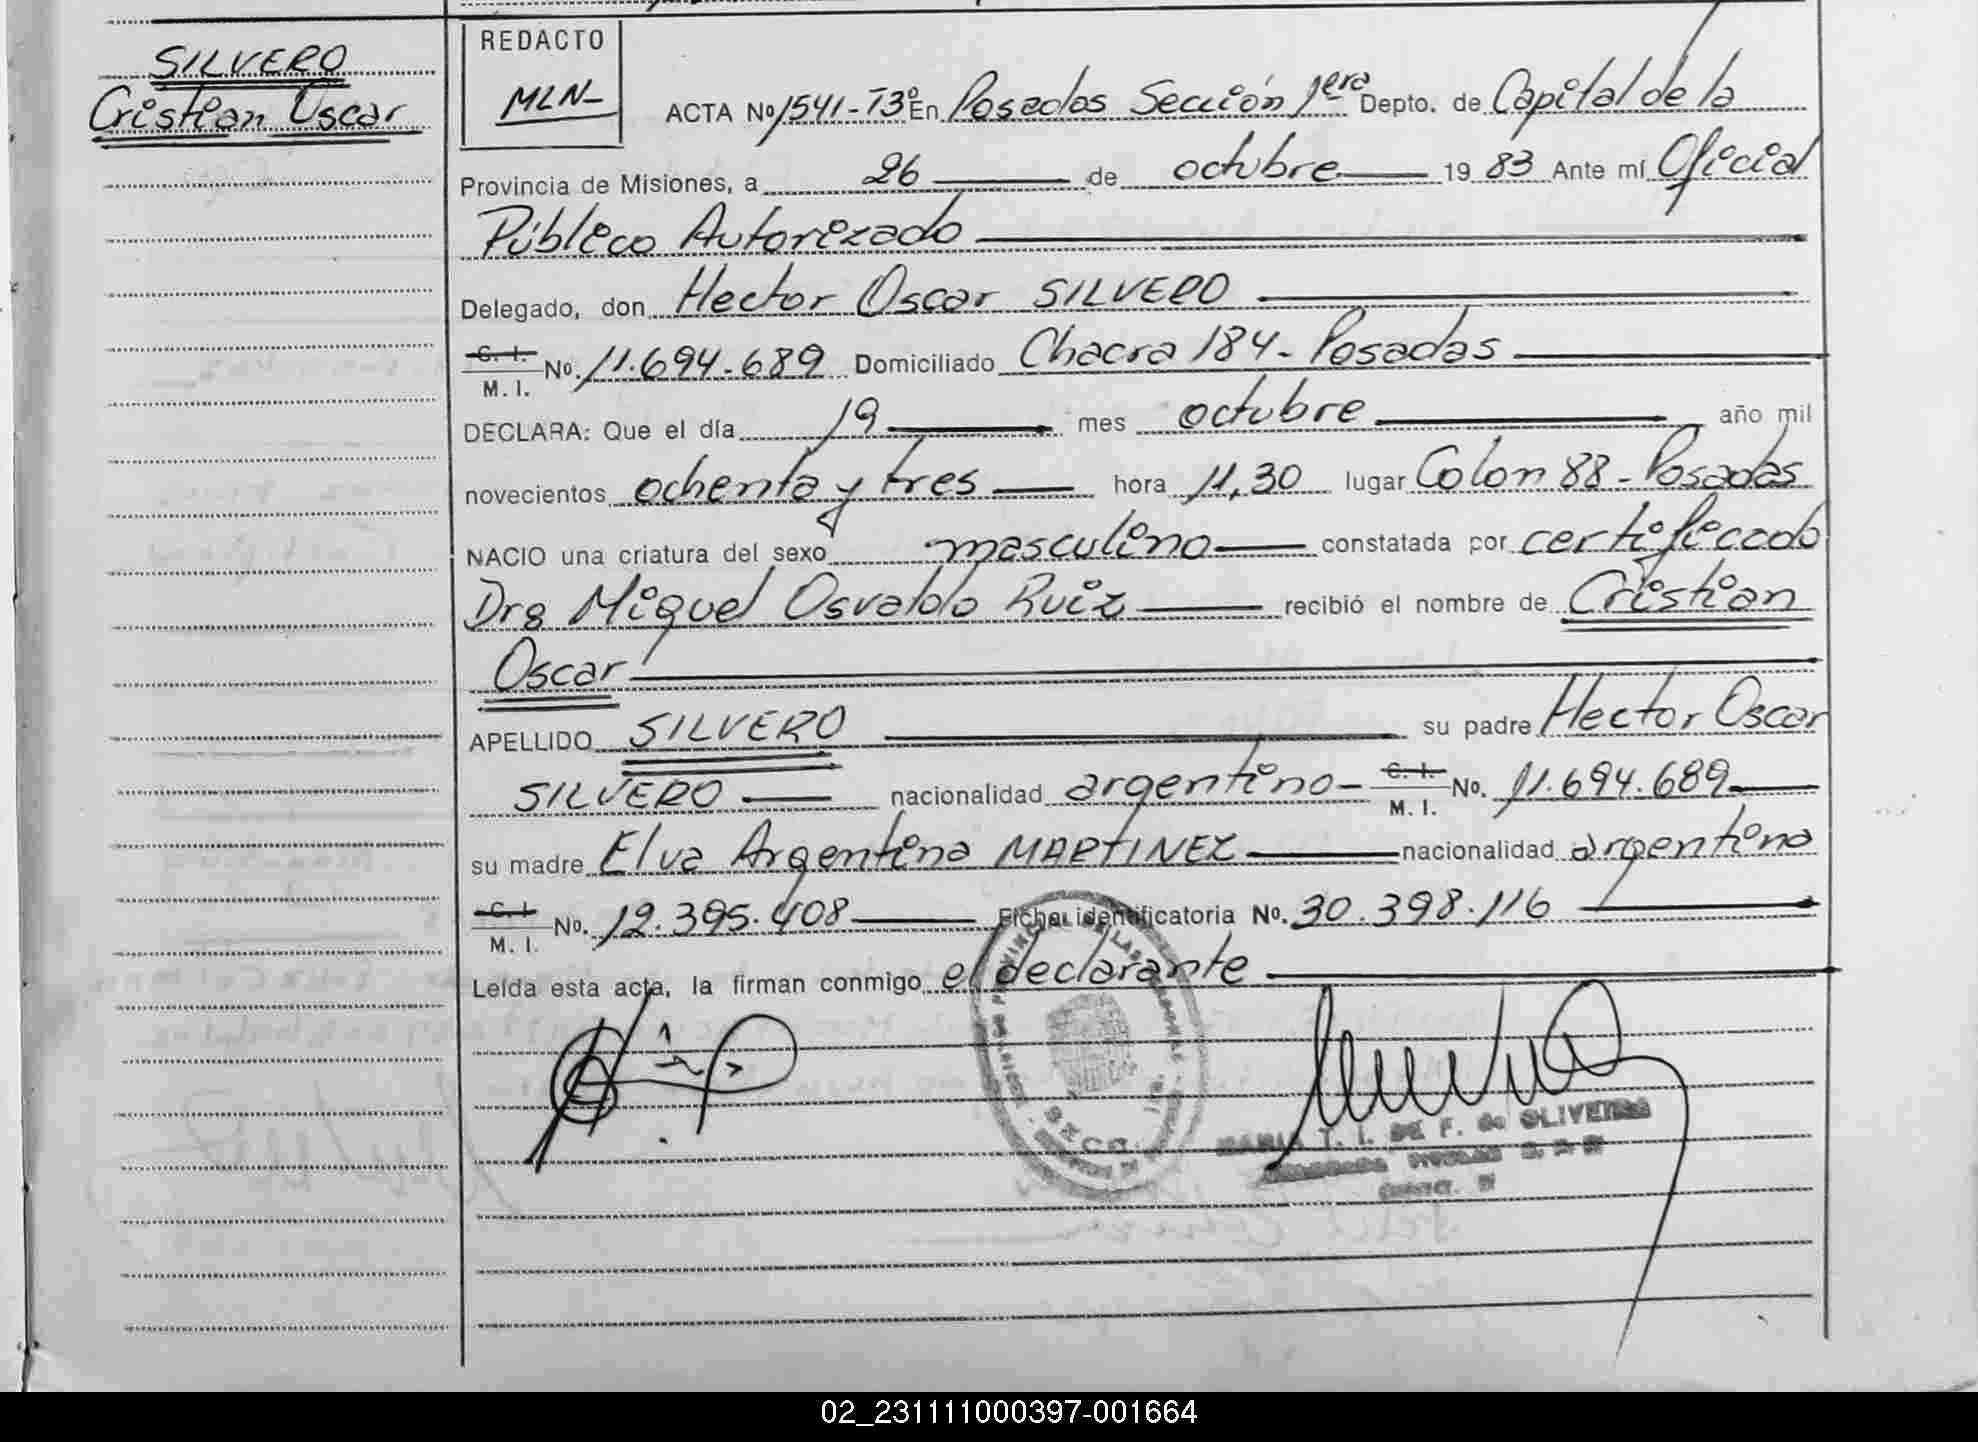 SILVERO
Cristian Oscar
REDACTO
MLN-
ACTA Nº 1541-Tº3 En Posadas Sección 1era Depto. de Capital de la
Provincia de Misiones, a 26 de octubre 19 83 Ante mí Oficial
Público Autorizado
Delegado, don Hector Oscar SILVERO
C. I. M. I. No. 11.694.689 Domiciliado Chacra 184- Posadas
DECLARA: Que el día 19 mes octubre año mil
novecientos ochenta y tres hora 11,30 lugar Colon 88 - Posadas
NACIO una criatura del sexo masculino constatada por certificado
Drg Miguel Osvaldo Ruiz recibió el nombre de Cristian
Oscar
APELLIDO SILVERO su padre Hector Oscar
SILVERO nacionalidad argentino- C. I. M. I. No. 11.694.689
su madre Elva Argentina MARTINEZ nacionalidad argentina
C. I. M. I. No. 12.395.408 Ficha identificatoria No. 30.398.116
Leída esta acta, la firman conmigo el declarante
MARIA T. I. DE F. de OLIVEIRA
02_231111000397-001664